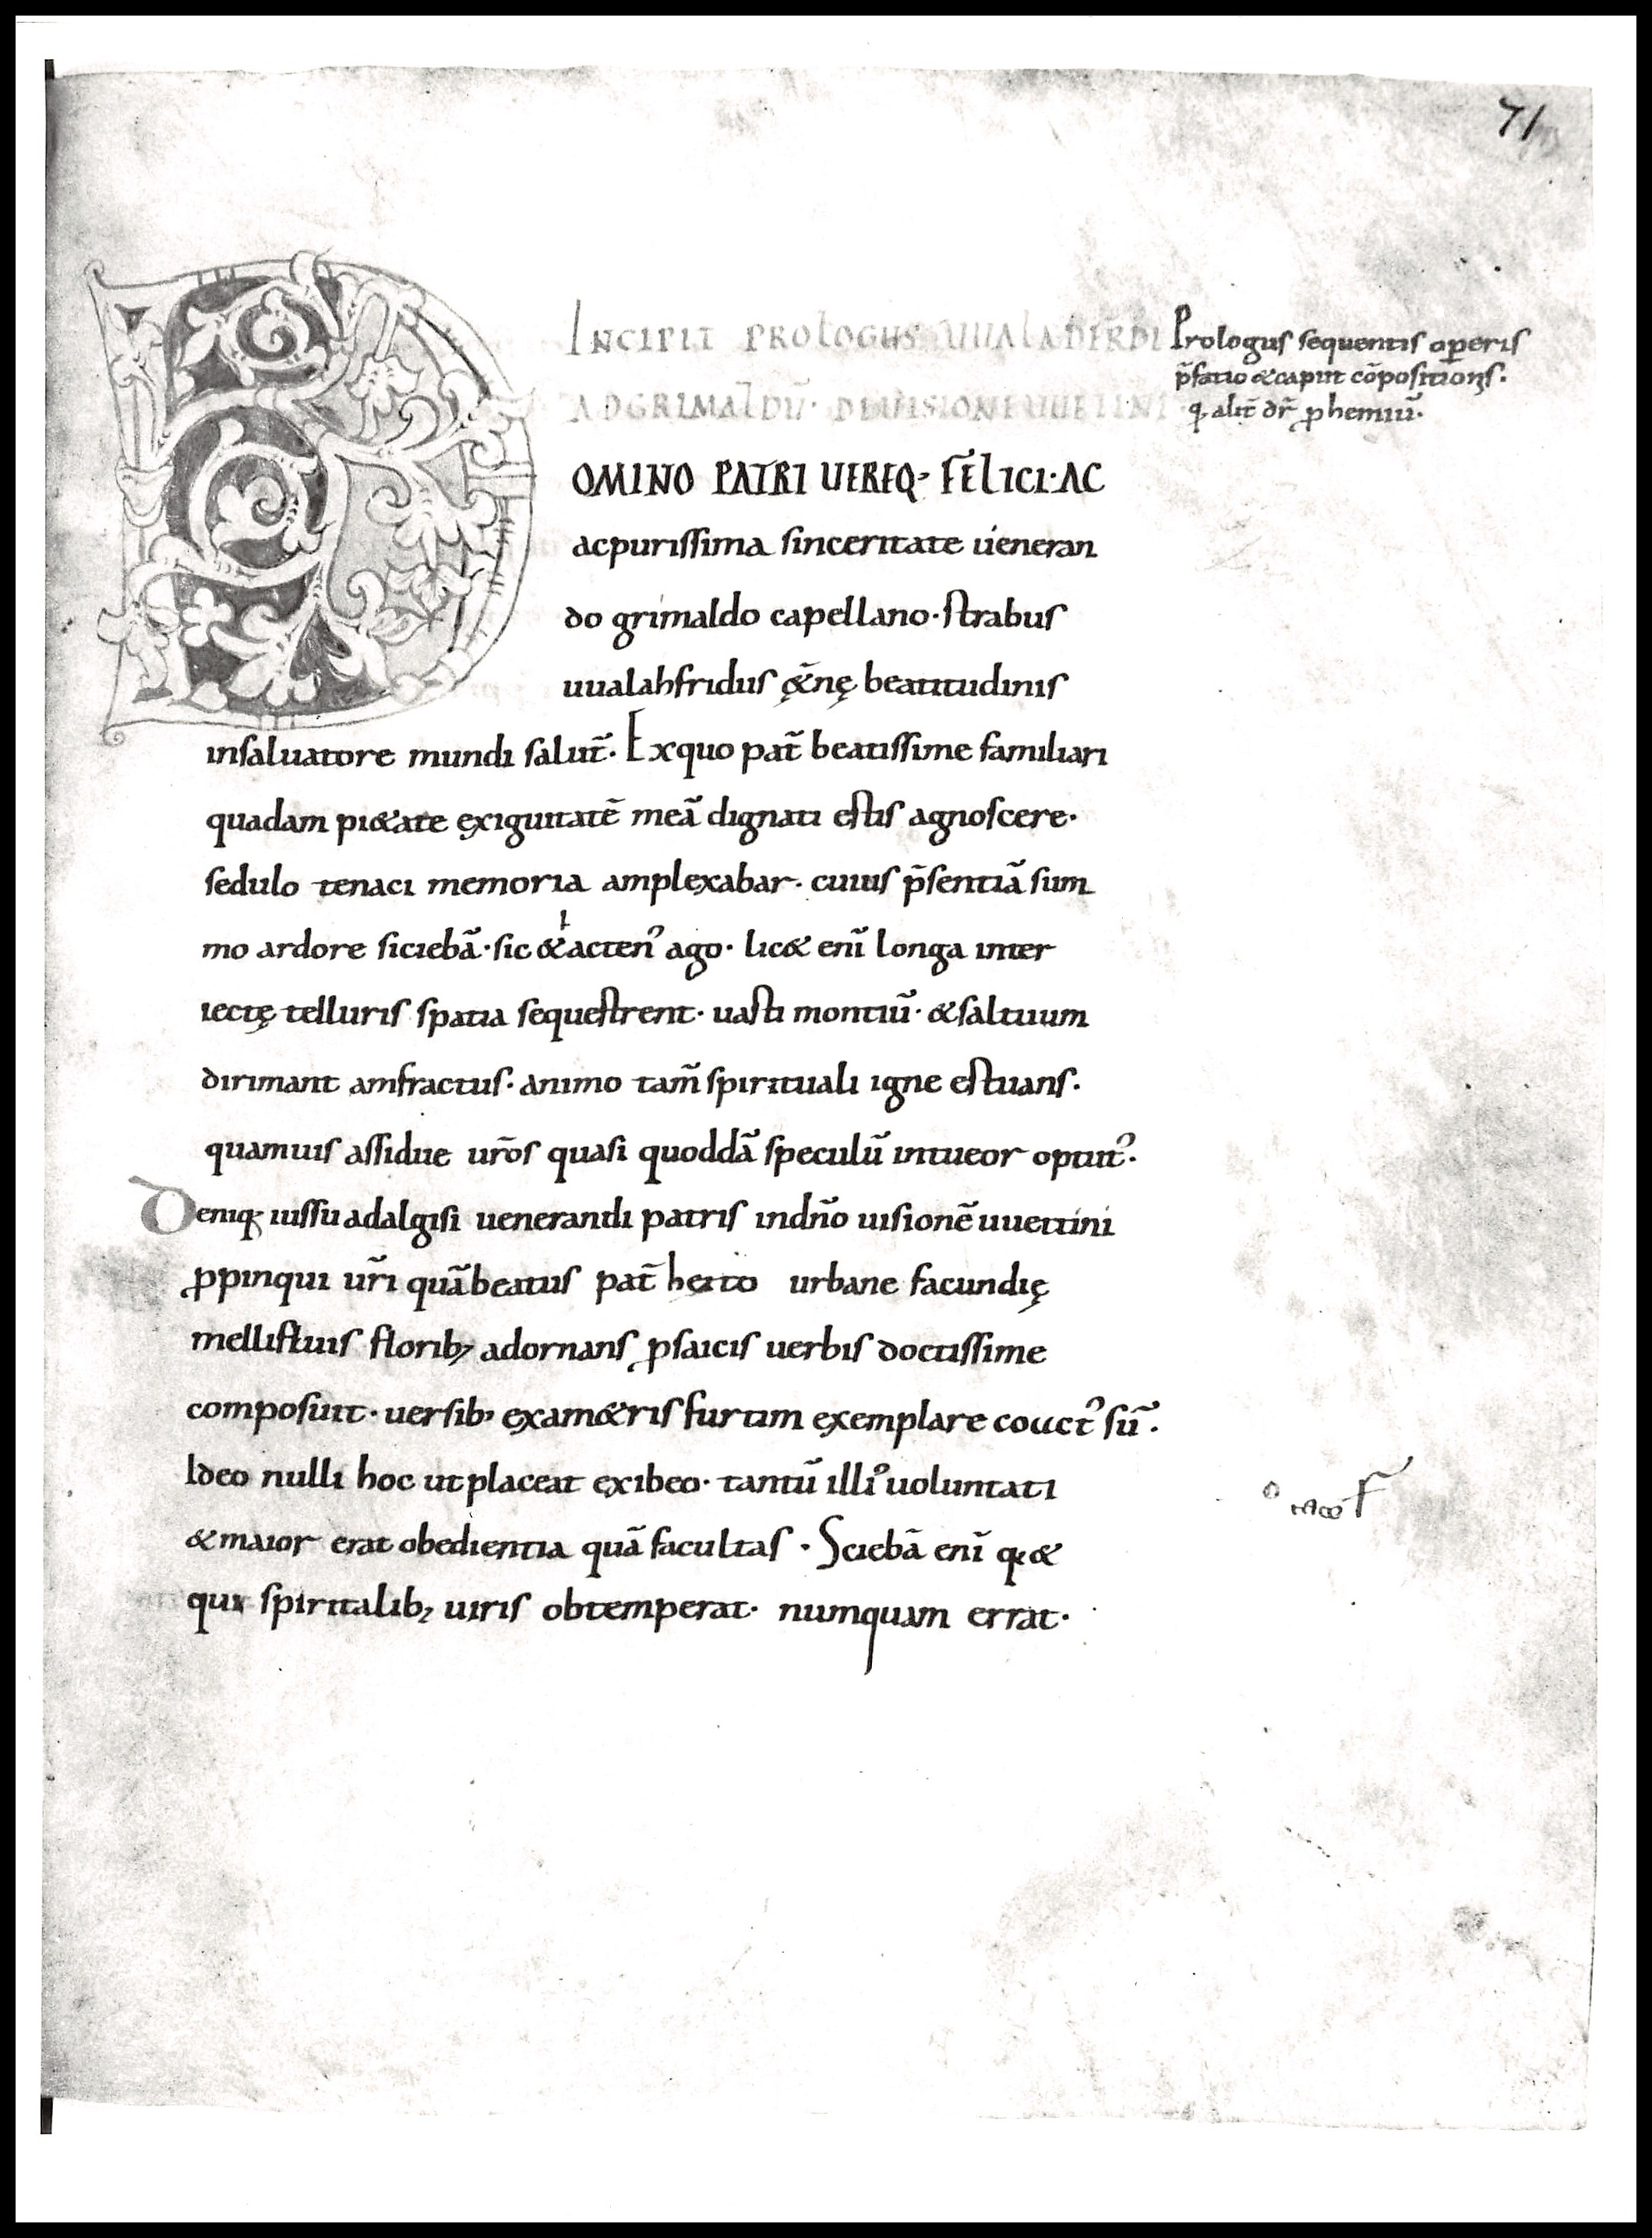 71
INCIPIT PROLOGUS UUALADFRIDI
AD GRIMALDŪ · DE UISIONE UUETTINI
Prologus sequentis operis
p̄fatio & caput cōpositionis.
q alit̄ dr̄ ꝓhemiū.
DOMINO PATRI UEREQ· FELICI · AC
acpurissima sinceritate ueneran
do grimaldo capellano · strabus
uualahfridus ę&̄nę beatitudinis
insaluatore mundi salut̄. Exquo pat̄ beatissime familiari
quadam pi&ate exiguitatē meā dignati estis agnoscere.
sedulo tenaci memoria amplexabar · cuius p̄sentiā sum
mo ardore siciebā · sic & acten᾽ ago · lic& enī longa inter
iectę telluris spatia sequestrent · uasti montiū · & saltuum
dirimant amfractus · animo tam̄ spirituali igne estuans.
quamuis assidue ur̄os quasi quoddā speculū intueor optut᾽.
Deniq; iussu adalgisi uenerandi patris indn̄o uisionē uuettini
ꝓpinqui ur̄i quā beatus pat̄ heito urbane facundię
mellifluis florib; adornans ꝓsaicis uerbis doctissime
composuit · uersib; exam&ris furtim exemplare couct᾽ sū.
Ideo nulli hoc ut placeat exibeo · tantū illi᾽ uoluntati
& maior erat obedientia quā facultas · Sciebā enī q &
qui spiritalib; uiris obtemperat · numquam errat.